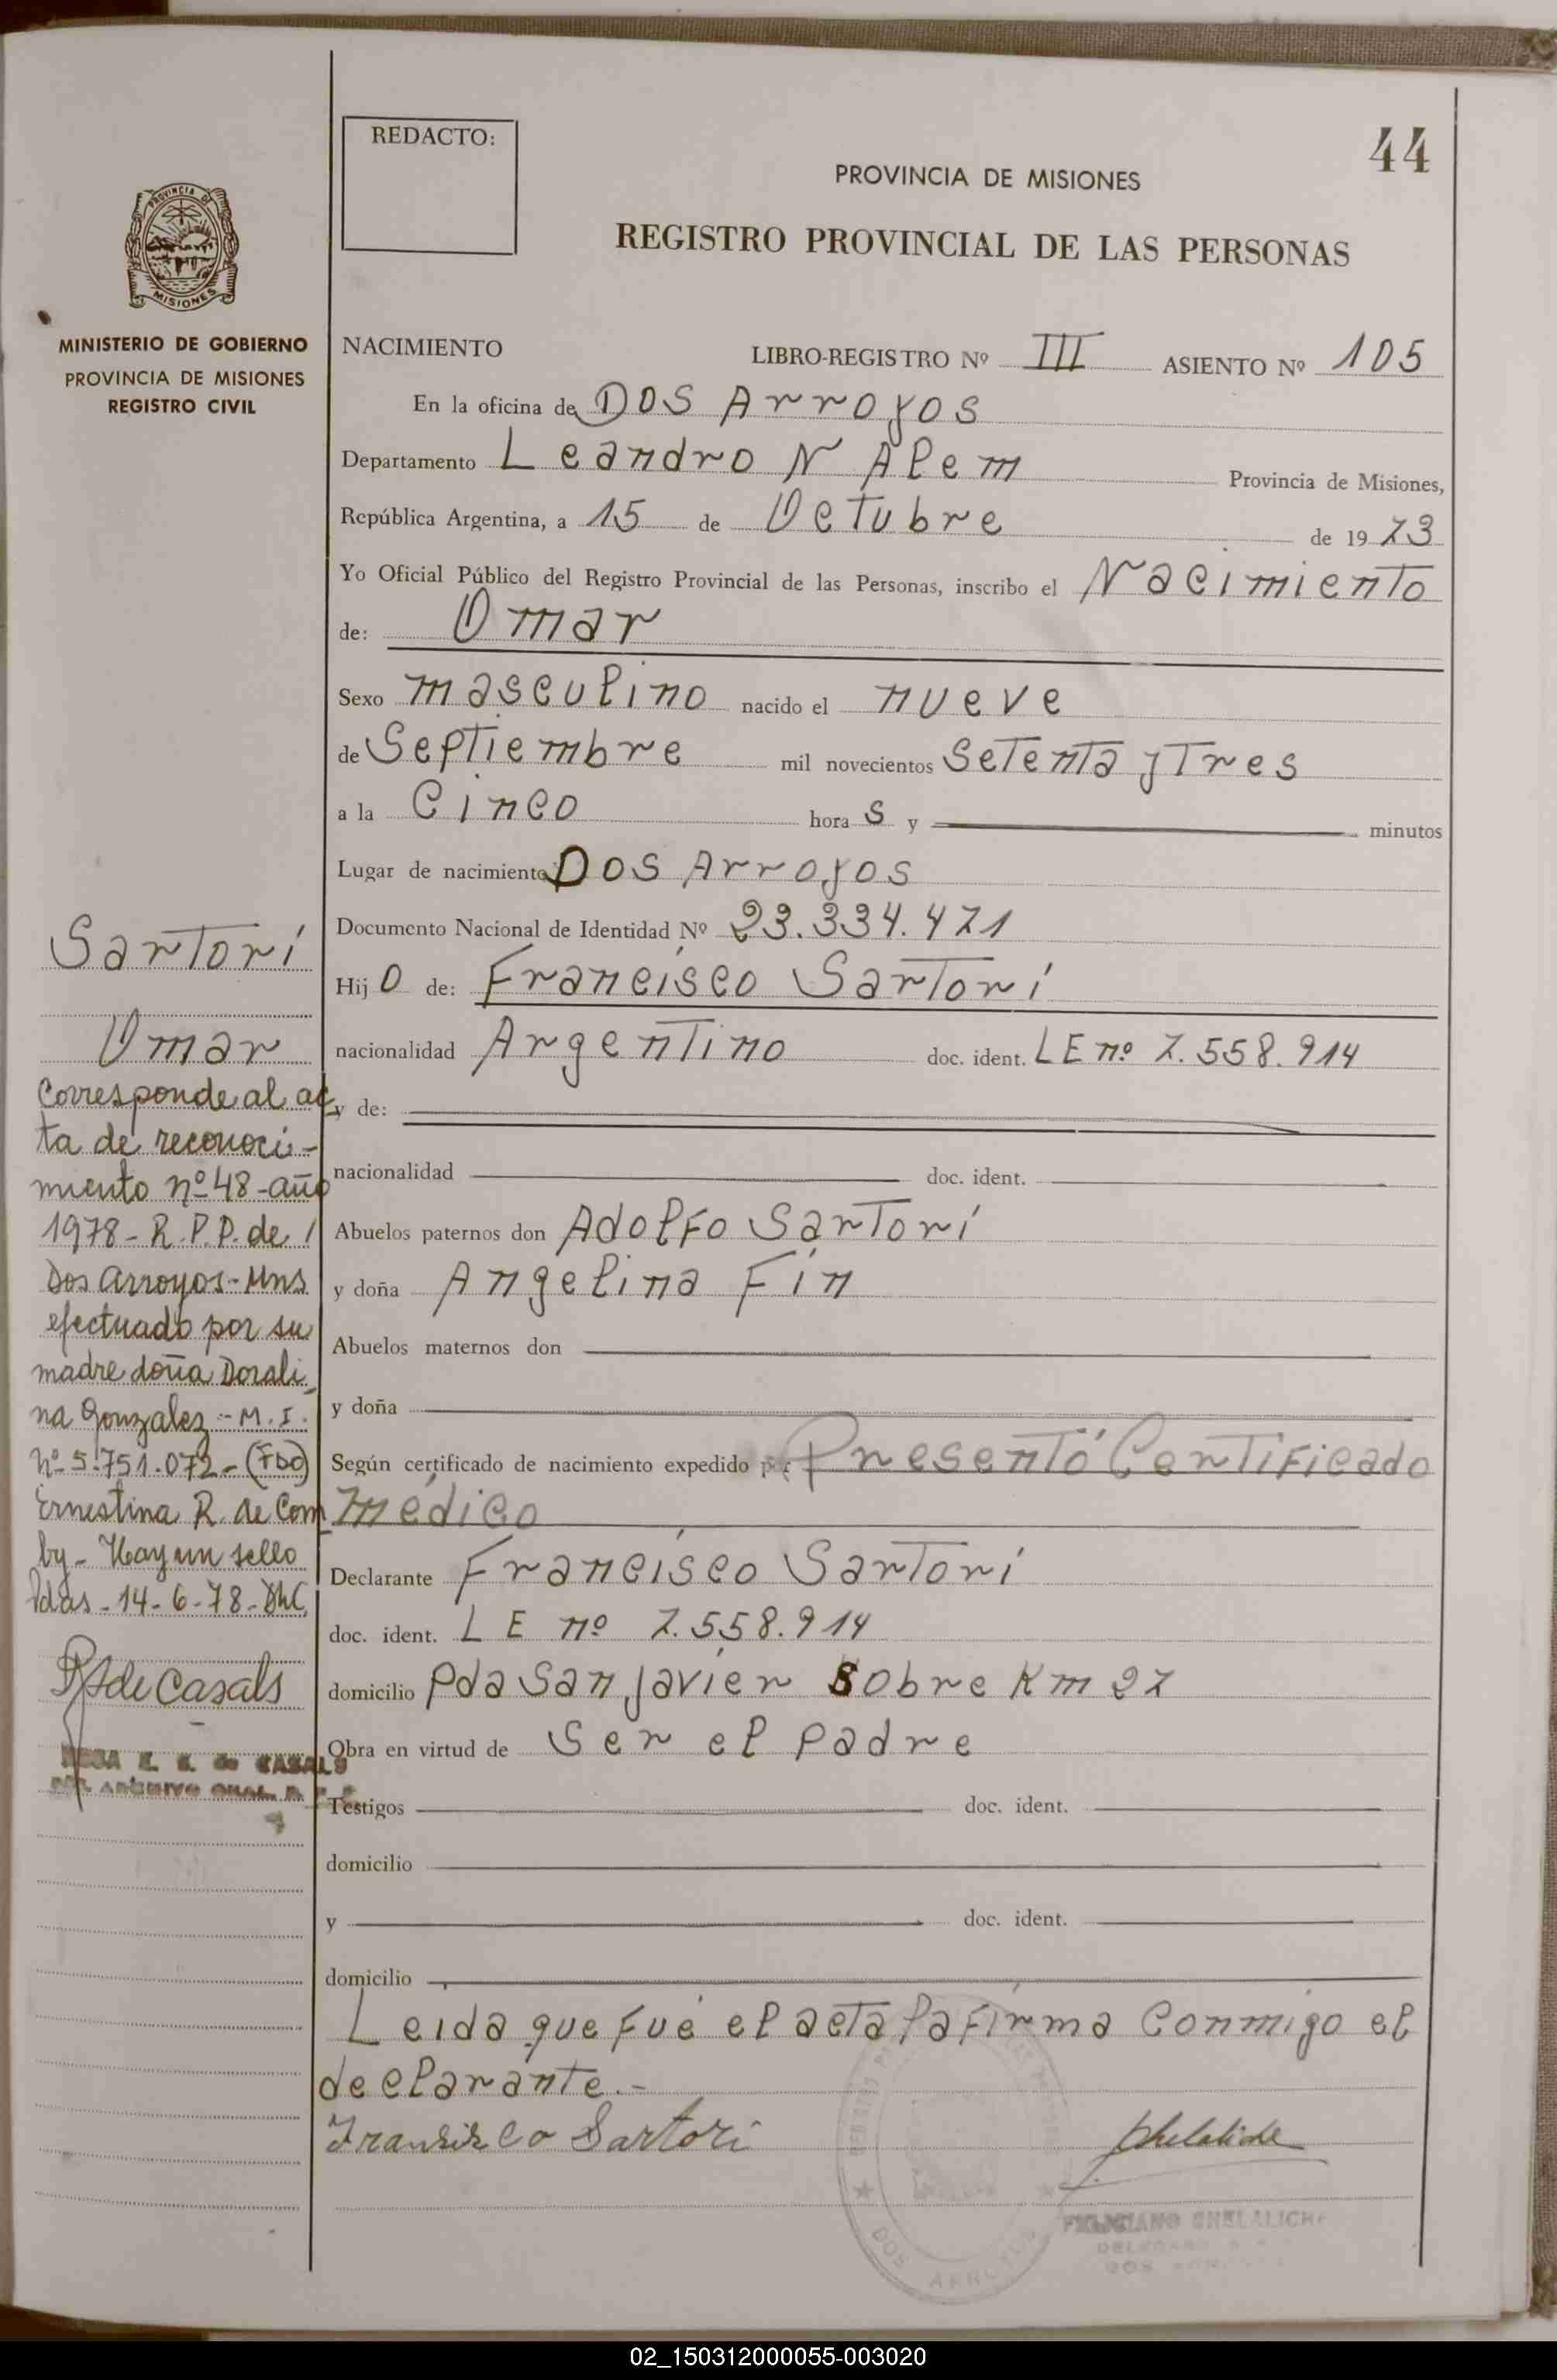 REDACTO:
44
PROVINCIA DE MISIONES
REGISTRO PROVINCIAL DE LAS PERSONAS
PROVINCIA DE
MISIONES
MINISTERIO DE GOBIERNO
PROVINCIA DE MISIONES
REGISTRO CIVIL
NACIMIENTO LIBRO-REGISTRO Nº III ASIENTO Nº 105
En la oficina de Dos Arroyos
Departamento Leandro N Alem Provincia de Misiones,
República Argentina, a 15 de Octubre de 1973
Yo Oficial Público del Registro Provincial de las Personas, inscribo el Nacimiento
de: Omar
Sexo masculino nacido el nueve
de Septiembre mil novecientos Setenta y Tres
a la Cinco hora S y minutos
Lugar de nacimiento Dos Arroyos
Documento Nacional de Identidad Nº 23.334.471
Hijo de: Francisco Sartori
nacionalidad Argentino doc. ident. LE nº 7.558.914
y de:
nacionalidad doc. ident.
Abuelos paternos don Adolfo Sartori
y doña Angelina Fin
Abuelos maternos don
y doña
Según certificado de nacimiento expedido por Presentó Certificado
médico
Declarante Francisco Sartori
doc. ident. LE nº 7.558.914
domicilio Pda San Javier Sobre Km 27
Obra en virtud de Ser el padre
Testigos doc. ident.
domicilio
y doc. ident.
domicilio
Leida que fué el acta la firma conmigo el
declarante.-
Fransisco Sartori
Sartori
Omar
Corresponde al ac
ta de reconoci-
miento nº 48-año
1978- R.P.P. de /
Dos Arroyos- Mns
efectuado por su
madre doña Dorali
na Gonzalez - M.I.
nº 5.751.072- (Fdo)
Ernestina R. de Com
by- Hay un sello
Pdas-14-6-78-
de Casals
de CASALS
FELICIANO CHELALICHE
DOS
02_150312000055-003020